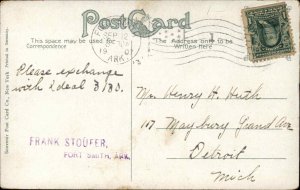 Post Card
This space may be used for
Correspondence
The Address only to be
Written here
SEP
19
ARK
Please exchange
with Ideal 3/30.
FRANK STOUFER,
FORT SMITH, ARK.
Mr. Henry H. Huth
107 Maybury Grand Ave
Detroit
Mich
Souvenir Post Card Co., New York. Printed in Germany.